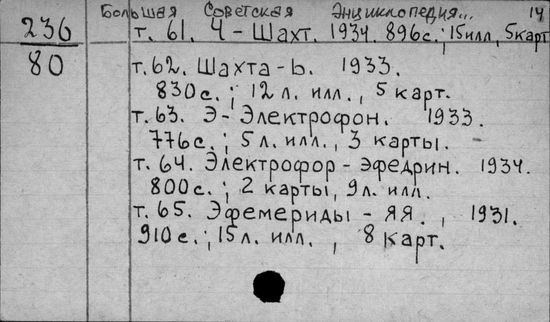 Большая Советская Энциклопедия... 14
236 т. 61. Ч - Шахт. 1934. 896с.; 15илл, 5карт
80 т. 62. Шахта - Ь. 1933.
830с.; 12 л. илл., 5 карт.
т. 63. Э - Электрофон. 1933.
776с.; 5 л. илл., 3 карты.
т. 64. Электрофор - Эфедрин. 1934.
800с.; 2 карты, 9л. илл.
т. 65. Эфемериды - ЯЯ., 1931.
910 с.; 15 л. илл., 8 карт.